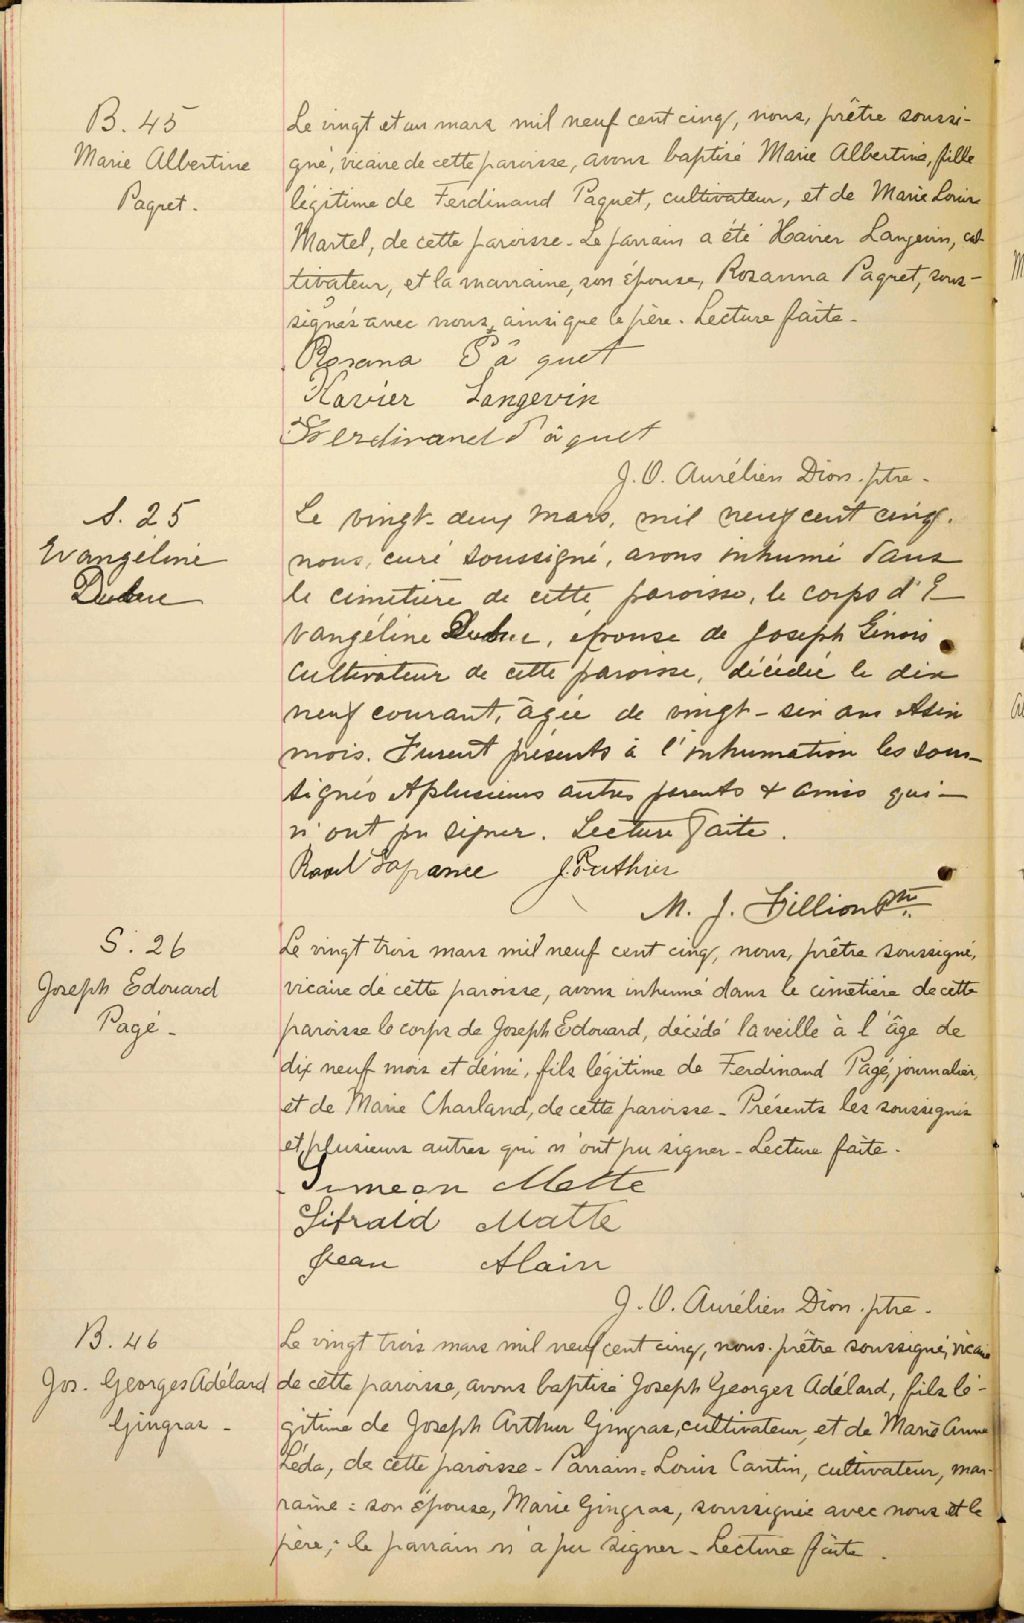 B. 45
Marie Albertine
Paquet.
Le vingt et un mars mil neuf cent cinq, nous, prêtre soussi-
gné, vicaire de cette paroisse, avons baptisé Marie Albertine, fille
légitime de Ferdinand Paquet, cultivateur, et de Marie Louise
Martel, de cette paroisse - Le parrain a été Xavier Langevin, cul
tivateur, et la marraine, son épouse, Rosanna Paquet, sous-
signés avec nous, ainsi que le père. Lecture faite.
Rosana Pâquet
Xavier Langevin
Ferdinand Pâquet
J. O. Aurélien Dion. ptre.
S. 25
Evangéline
Dubuc
Le vingt-deux mars, mil neuf cent cinq.
nous, curé soussigné, avons inhumé dans
le cimetière de cette paroisse, le corps d'E
vangéline Dubuc, épouse de Joseph Génois
cultivateur de cette paroisse, décédée le dix
neuf courant, âgée de vingt-six ans & six
mois. Furent présents à l'inhumation les sous-
signés & plusieurs autres parents & amis qui
n'ont pu signer. Lecture faite.
Raoul Lafrance J. P. Authier
M. J. Fillion Ptre
S. 26
Joseph Edouard
Pagé -
Le vingt trois mars mil neuf cent cinq, nous, prêtre soussigné,
vicaire de cette paroisse, avons inhumé dans le cimetière de cette
paroisse le corps de Joseph Edouard, décédé la veille à l'âge de
dix neuf mois et demi, fils légitime de Ferdinand Pagé, journalier,
et de Marie Charland, de cette paroisse - Présents les soussignés
et plusieurs autres qui n'ont pu signer - Lecture faite.
Simeon Matte
Sifraid Matte
Jean Alain
J. O. Aurélien Dion. ptre.
B. 46
Jos. Georges Adélard
Gingras -
Le vingt trois mars mil neuf cent cinq, nous, prêtre soussigné, vicaire
de cette paroisse, avons baptisé Joseph Georges Adélard, fils lé-
gitime de Joseph Arthur Gingras, cultivateur, et de Marie Anne
Léda, de cette paroisse - Parrain = Louis Cantin, cultivateur, mar-
raine = son épouse, Marie Gingras, soussignée avec nous et le
père; le parrain n'a pu signer - Lecture faite.